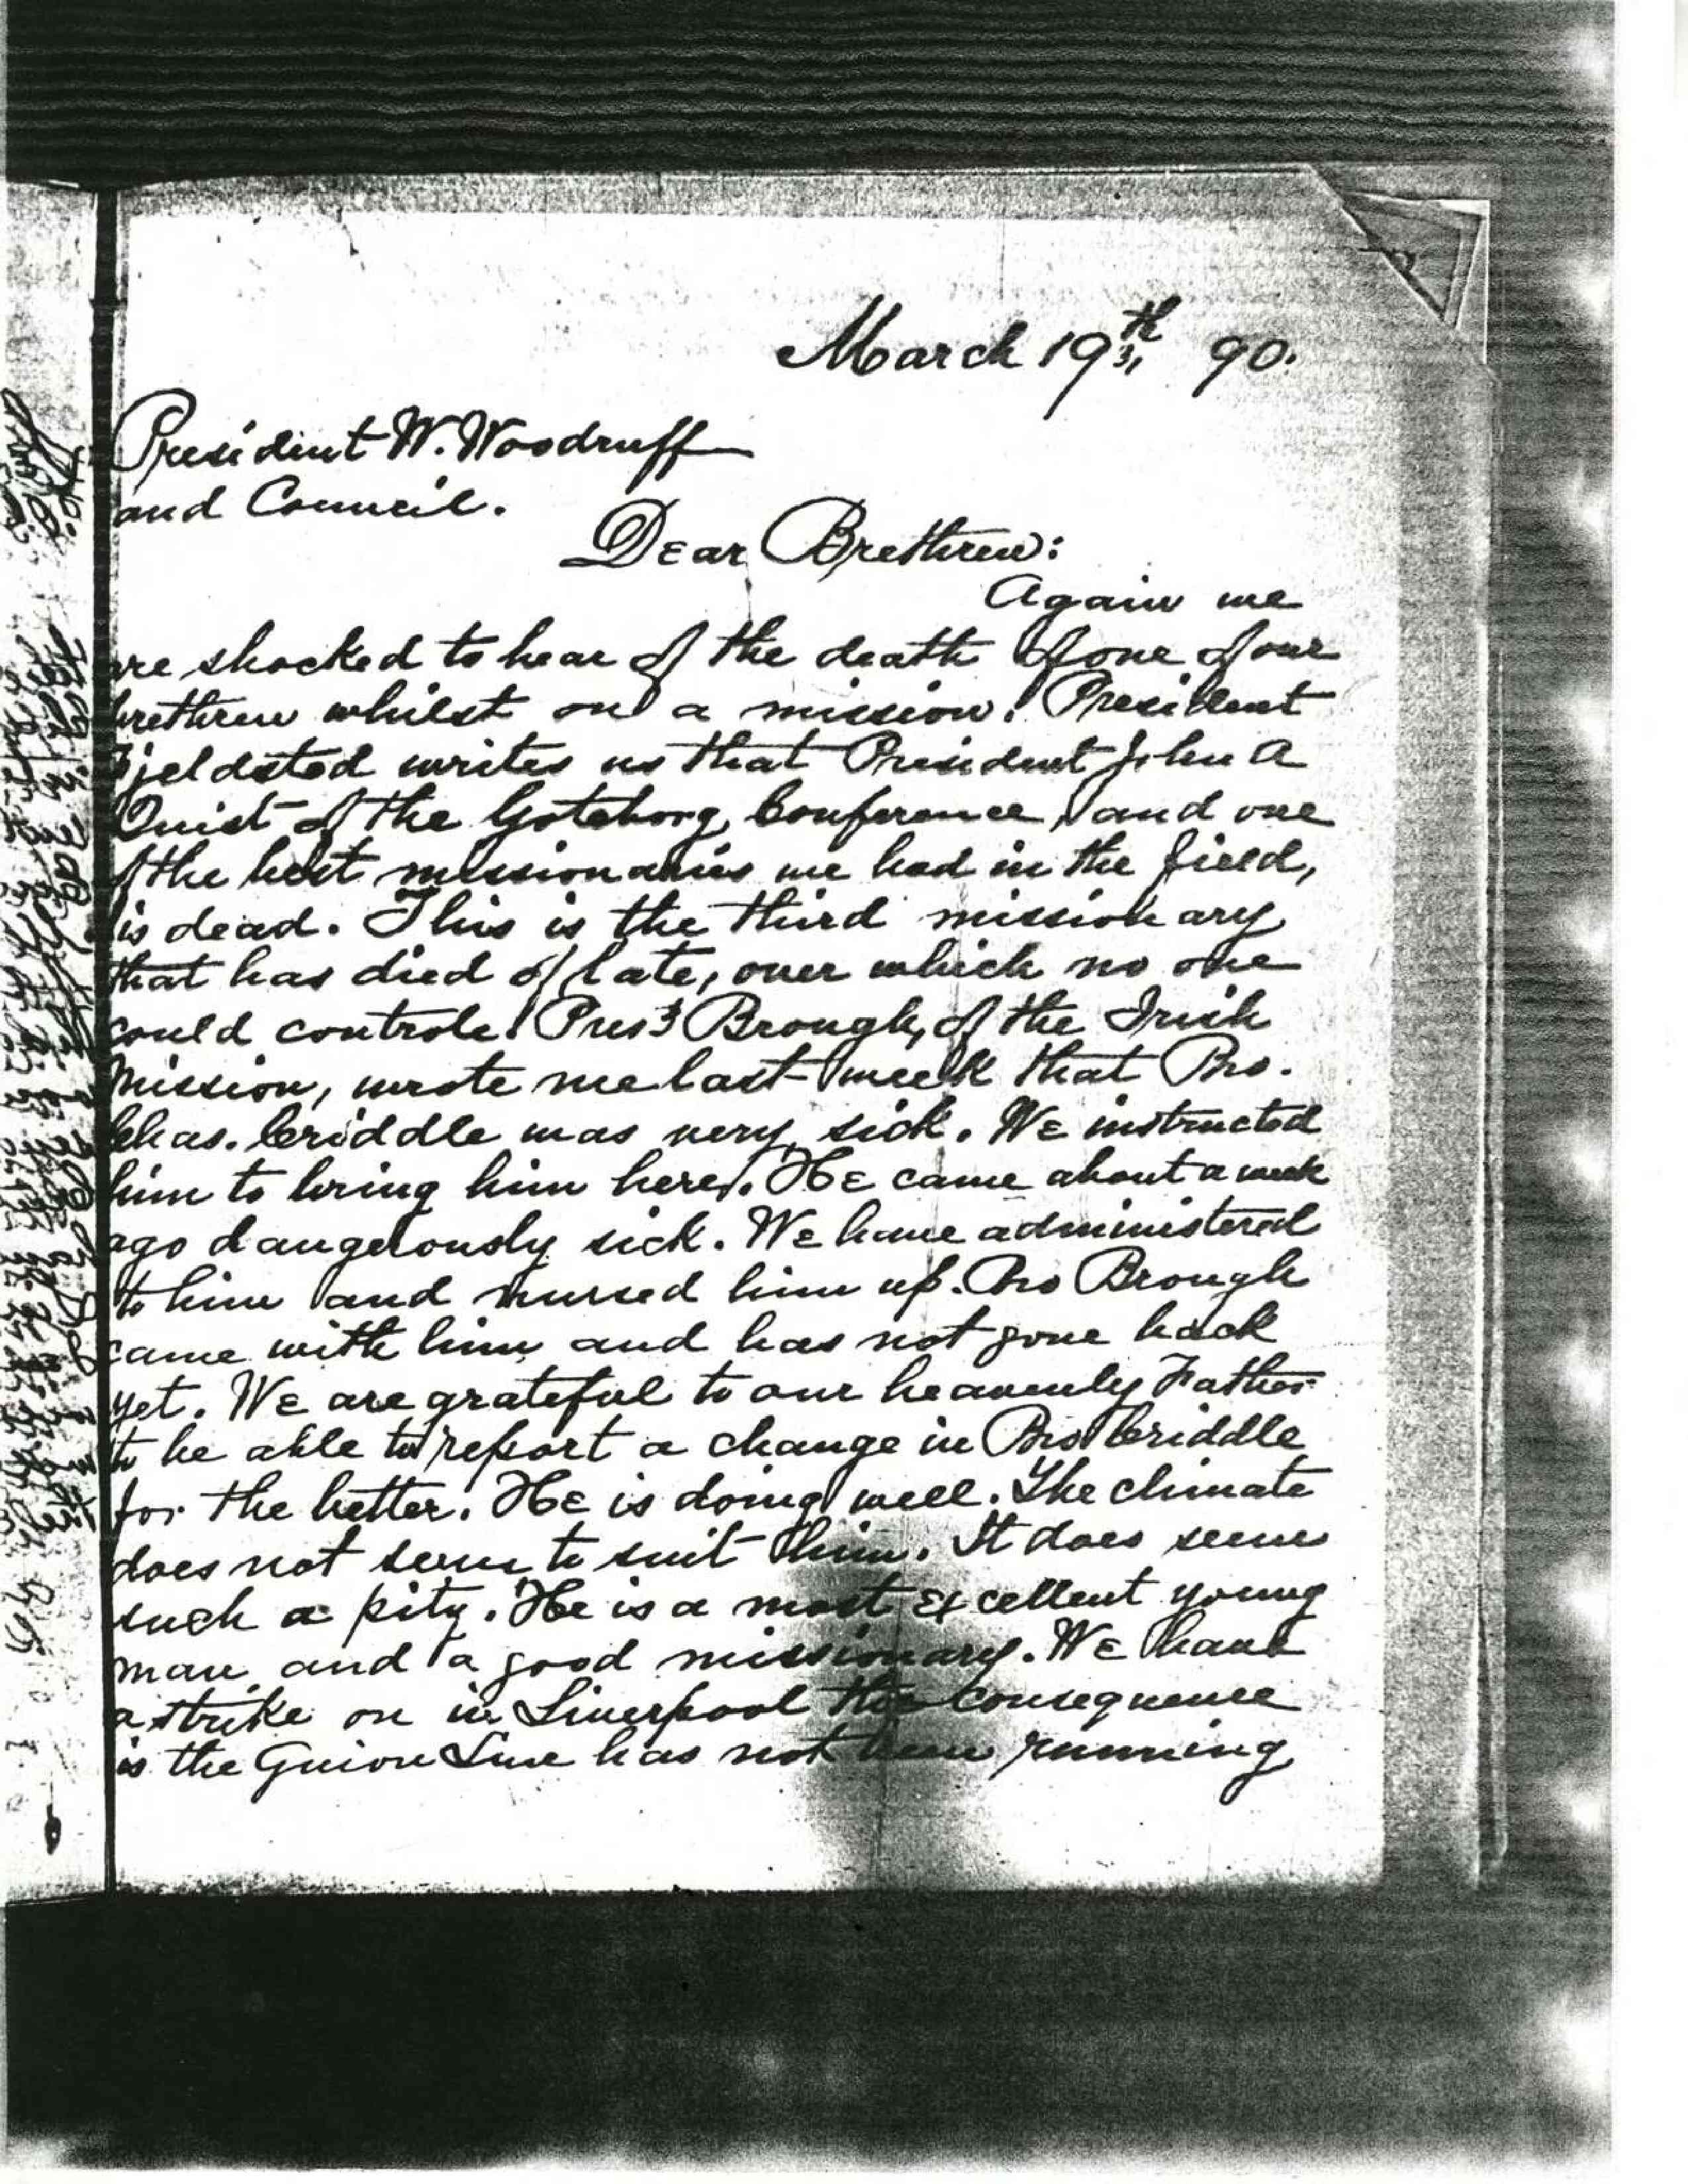 March 19th 90.
President W. Woodruff
and Council.
Dear Brethren:
Again we
are shocked to hear of the death of one of our
brethren whilst on a mission. President
Fjeldsted writes us that President John A
Quist of the Goteborg Conference, and one
of the best missionaries we had in the field,
is dead. This is the third missionary
that has died of late, over which no one
could controle. Pres. Brough, of the Irish
Mission, wrote me last week that Bro.
Chas. Criddle was very sick. We instructed
him to bring him here. He came about a week
ago dangerously sick. We have administered
to him and nursed him up. Bro Brough
came with him and has not gone back
yet. We are grateful to our heavenly Father
to be able to report a change in Bro Criddle
for the better. He is doing well. The climate
does not seem to suit him. It does seem
such a pity. He is a most excellent young
man and a good missionary. We have
a strike on in Liverpool the consequence
is the Guion Line has not been running